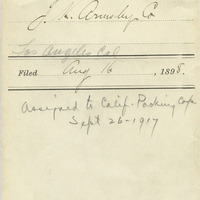 J. K. Armsby Co
Los Angeles Cal
Filed Aug 16, 1898.
Assigned to Calif. Packing Corp
Sept 26-1917